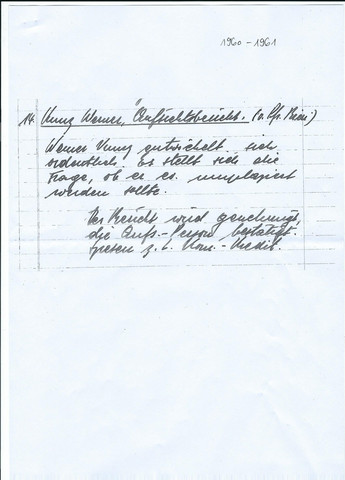 1960 - 1961
14. Kunz Werner, Aufsichtsbericht. (v. Pfr. Rieni)
Werner Kunz entwickelt sich
ordentlich! Es stellt sich die
Frage, ob er ev. umplaziert
werden sollte.
Der Bericht wird genehmigt,
die Aufs.-Person bestätigt.
Spesen z. L. Kom.-Kredit.